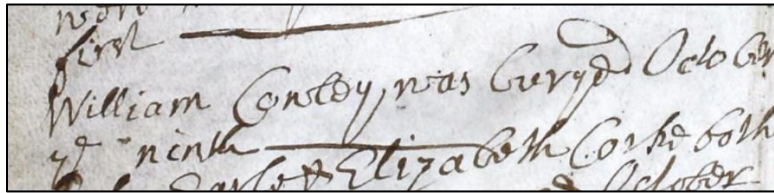 first
William Contey was buryed October
ye ninth
& Elizabeth Corke both
October